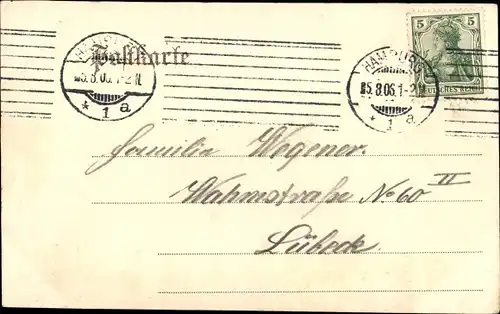 5 5
DEUTSCHES REICH
HAMBURG
5.8.06.1-2N.
* 1 a
HAMBURG
5.8.06.1-2N.
* 1 a
Postkarte
Familie Wegener.
Wahmstraße No 60 II
Lübeck.